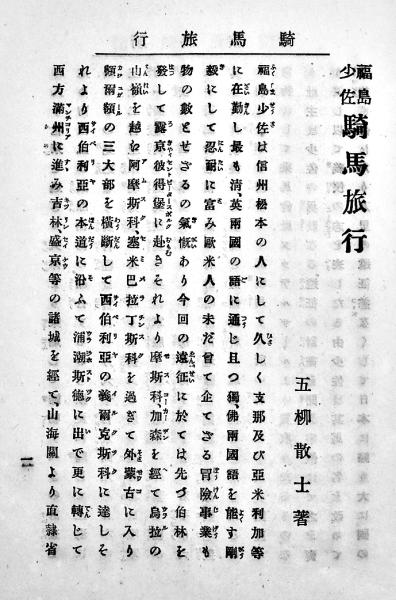 騎馬旅行
福島少佐 騎馬旅行
五柳散士著
福島少佐は信州松本の人にして久しく支那及び亞米利加等
に在勤し最も清、英兩國の語に通じ且つ獨、佛兩國語を能す剛
毅にして忍耐に富み歐米人の未だ曾て企てざる冒險事業も
物の數とせざるの氣慨あり今回の遠征に於ては先づ伯林を
發して露京彼得堡に赴きそれより摩斯科、加森を經て烏拉の
山嶺を越ゑ阿摩斯科、塞米巴拉丁斯科を過ぎて外蒙古に入り
額爾額の三大部を橫斷して西伯利亞の義爾克斯科に達しそ
れより西伯利亞の本道に沿ふて浦潮斯德に出で更に轉じて
西方滿州に進み吉林盛京等の諸城を經て山海關より直隷省